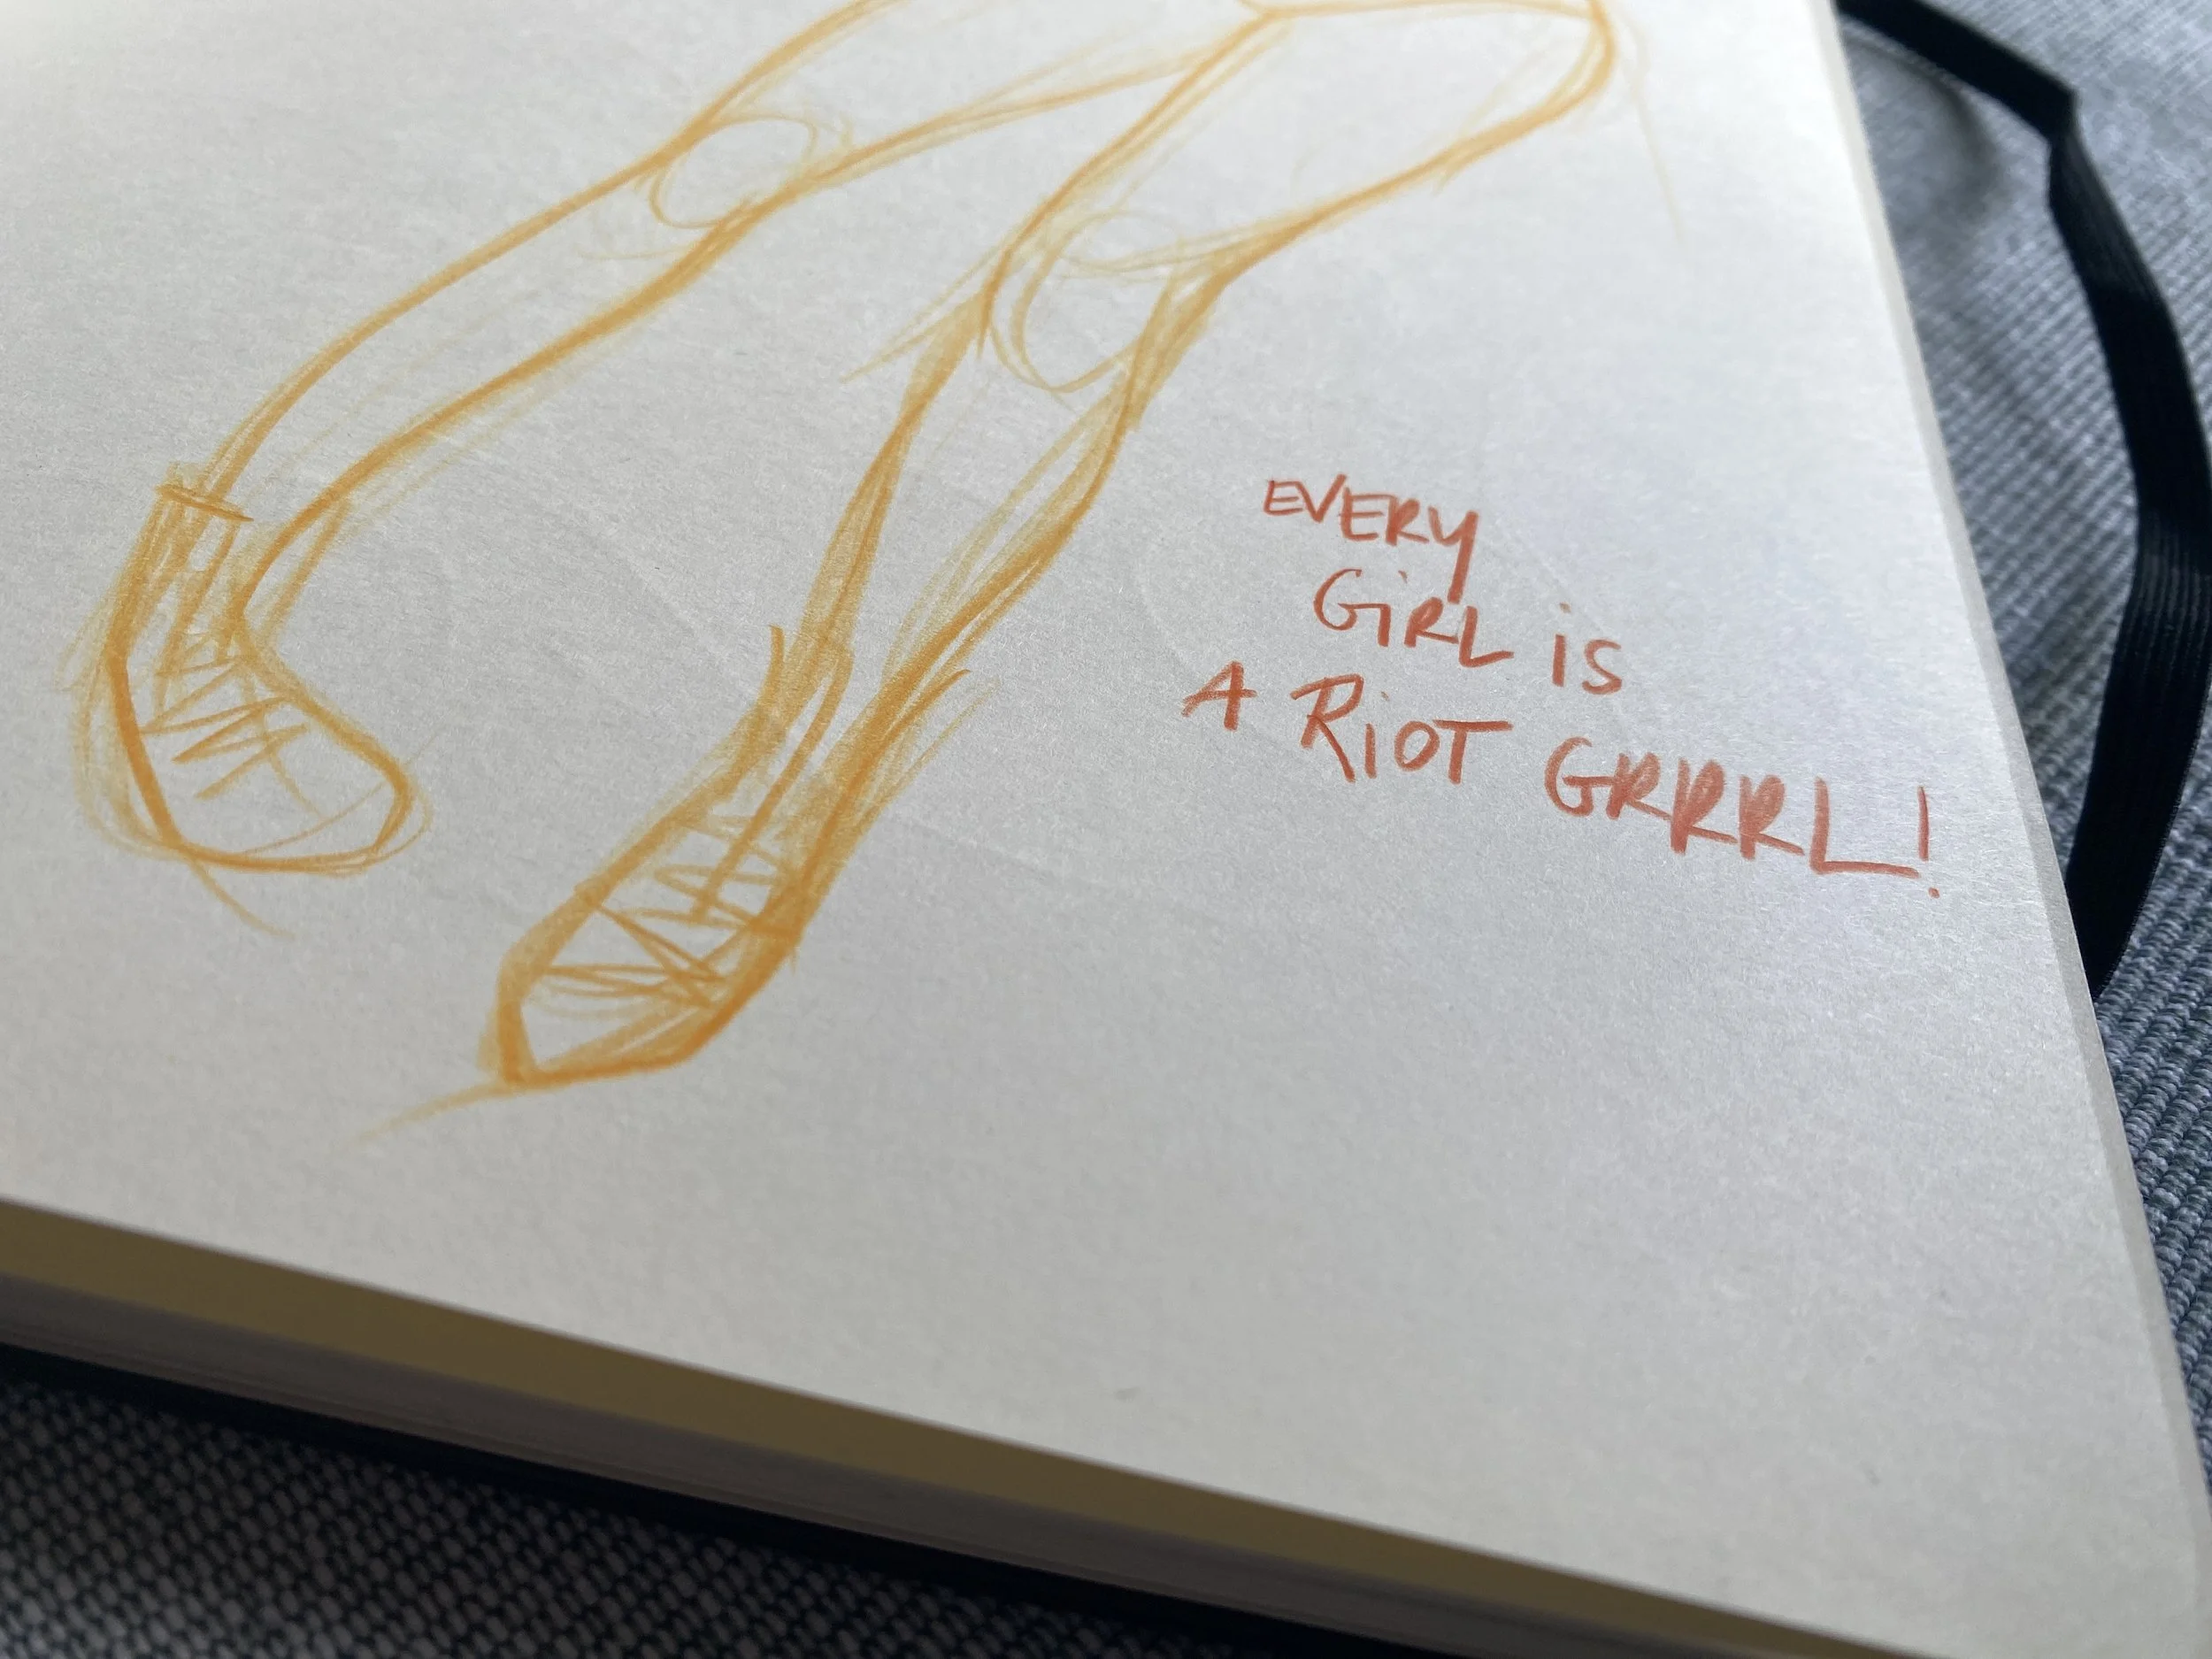 EVERY
GiRL iS
A RiOT GRRRL!